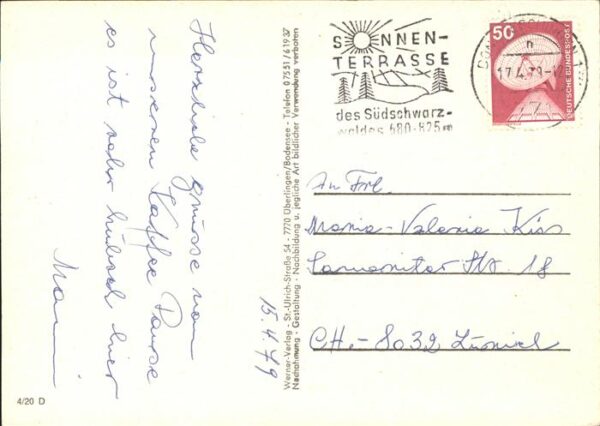 Herzliche Grüsse von
unserer Kaffee Pause
es ist sehr hübsch hier
15.4.79
4/20 D
Werner-Verlag - St.-Ulrich-Straße 54 - 7770 Überlingen/Bodensee - Telefon 07551/61937
Nachahmung - Gestaltung - Nachbildung u. jegliche Art bildlicher Verwendung verboten
SONNEN-
TERRASSE
des Südschwarz-
waldes 680-825 m
17.4.79
50
DEUTSCHE BUNDESPOST
An Frl.
Maria-Valeria Kiss
Str. 18
CH.- 8032 Zürich